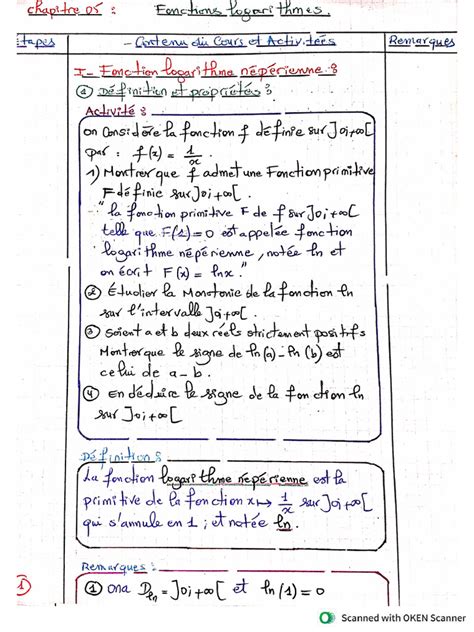 chapitre 05 : Fonctions logarithmes.
Etapes - Contenu du Cours et Activitées Remarques
I- Fonction logarithme népérienne :
① Définition et propriétés :
Activité :
on Considère la fonction f définie sur ]0;+∞[
par : f(x) = 1/x
1) Montrer que f admet une Fonction primitive
F définie sur ]0;+∞[.
"la fonction primitive F de f sur ]0;+∞[
telle que F(1)=0 est appelée fonction
logarithme népérienne, notée ln et
on écrit F(x) = lnx."
② Étudier la Monotonie de la fonction ln
sur l'intervalle ]0;+∞[.
③ Soient a et b deux réels strictement positifs
Montrer que le signe de ln(a) - ln(b) est
celui de a - b.
④ En déduire le signe de la fonction ln
sur ]0;+∞[
Définition :
La fonction logarithme népérienne est la
primitive de la fonction x ↦ 1/x sur ]0;+∞[
qui s'annule en 1 ; et notée ln.
Remarques :
① ① on a D_ln = ]0;+∞[ et ln(1) = 0
Scanned with OKEN Scanner